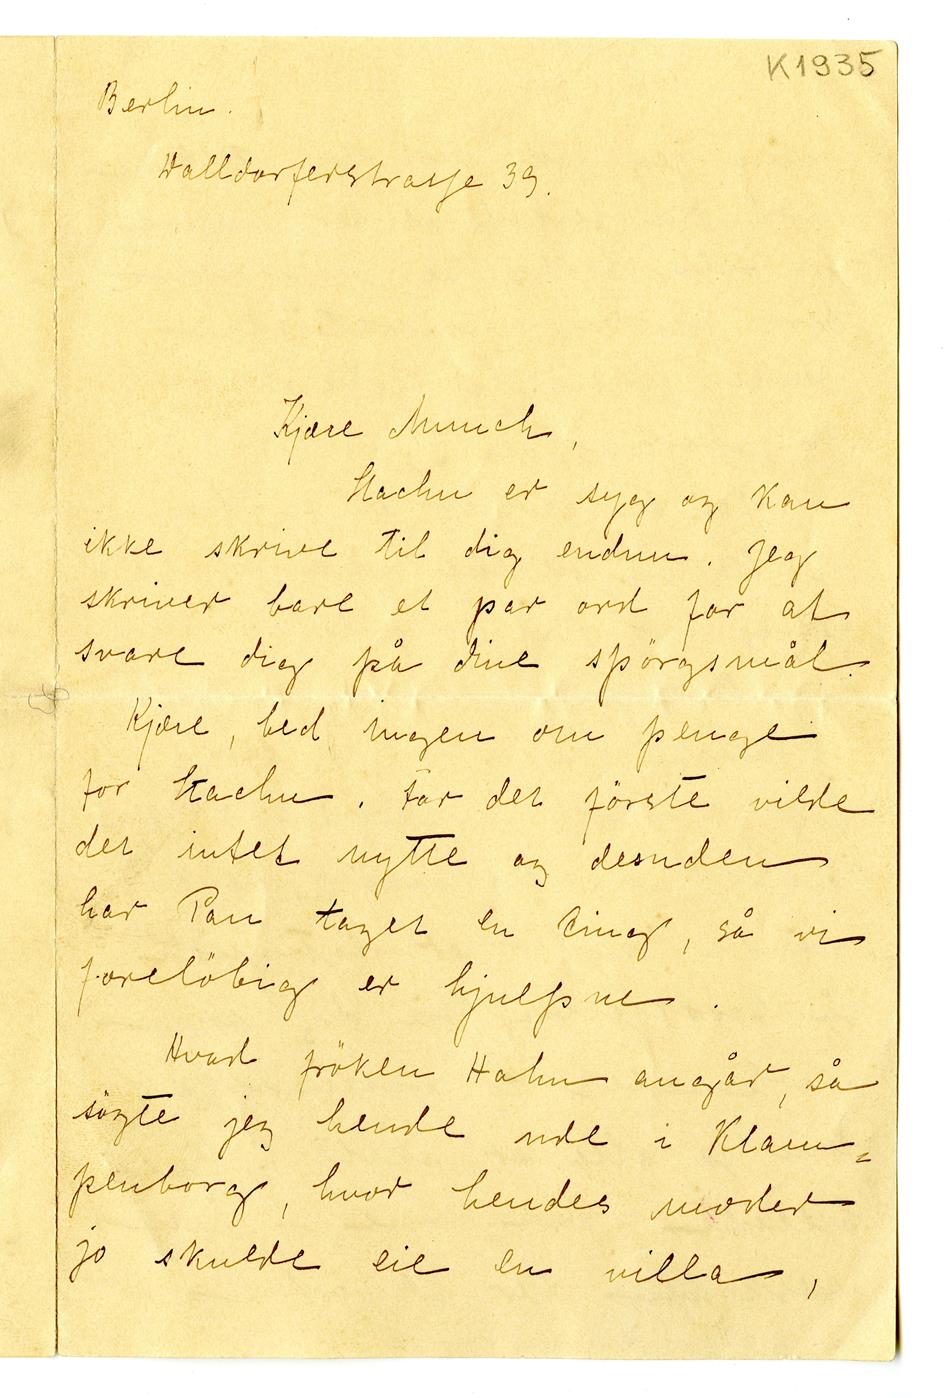 K1935
Berlin.
Walldorferstrasse 39.
Kjære Munch,
Stachu er syg og kan
ikke skrive til dig endnu. Jeg
skriver bare et par ord for at
svare dig på dine spörgsmål.
Kjære, bed ingen om penge
for Stachu. For det förste vilde
det intet nytte og desuden
har Pan taget en ting, så vi
foreløbig er hjulpne.
Hvad fröken Hahn angår, så
sögte jeg hende ude i Klam=
penborg, hvor hendes moder
jo skulde eie en villa,